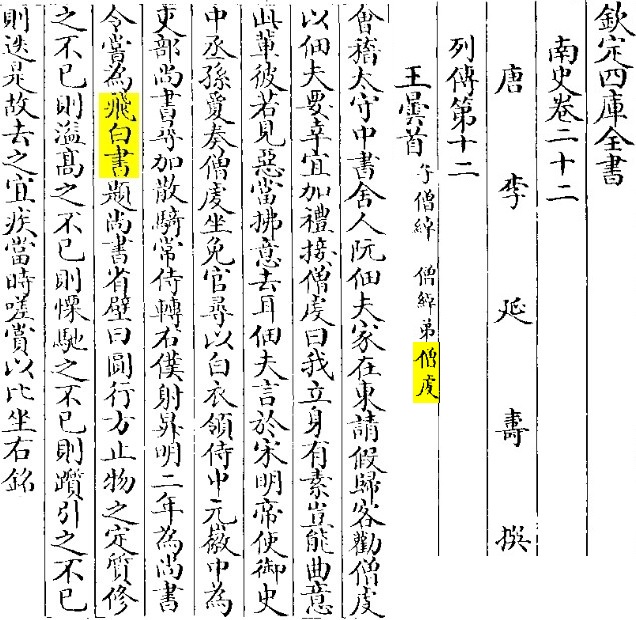 欽定四庫全書
南史卷二十二
唐 李 延 壽 撰
列傳第十二
王曇首 子僧綽 僧綽弟僧䖍
會稽太守中書舍人阮佃夫家在東請假歸客勸僧䖍
以佃夫要幸宜加禮接僧䖍曰我立身有素豈能曲意
此軰彼若見惡當拂意去耳佃夫言於宋明帝使御史
中丞孫夐奏僧䖍坐免官尋以白衣領侍中元徽中為
吏部尚書尋加散騎常侍轉右僕射昇明二年為尚書
令嘗為飛白書題尚書省壁曰圓行方止物之定質修
之不已則溢髙之不已則慄馳之不已則躓引之不已
則迭是故去之宜疾當時嗟賞以比坐右銘